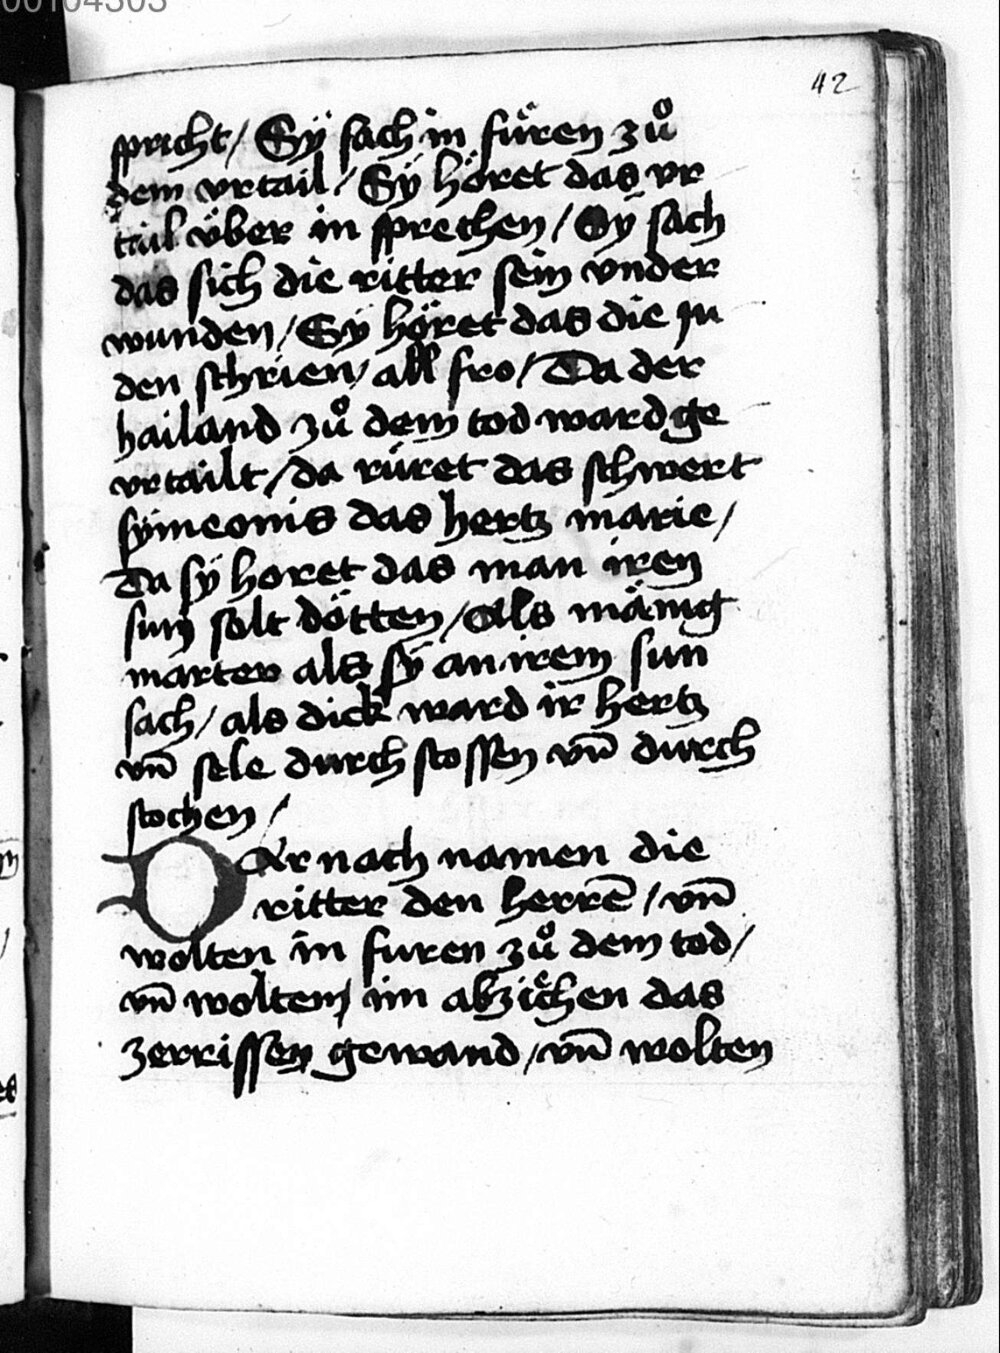 00104303
42
spricht / Sÿ sach in fuͤren zuͦ
dem vrtail / Sÿ höret das vr
tail v̈ber in sprechen / Sÿ sach
das sich die ritter sein vnder
wunden / Sÿ höret das die Ju
den schrien / all fro / Da der
hailand zuͦ dem tod ward ge
vrtailt / da rüret das schwert
sÿmeonis das hertz marie /
Da sÿ horet das man iren
sun solt dötten / Als mänig
marter als sÿ an irem sun
sach / als dick ward ir hertz
vn̄ sele durch stossen vn̄ durch
stochen /
Dar nach namen die
ritter den herrē / vn̄
wolten in furen zuͦ dem tod /
vn̄ wolten im abziechen das
zerrissen gewand / vn̄ wolten